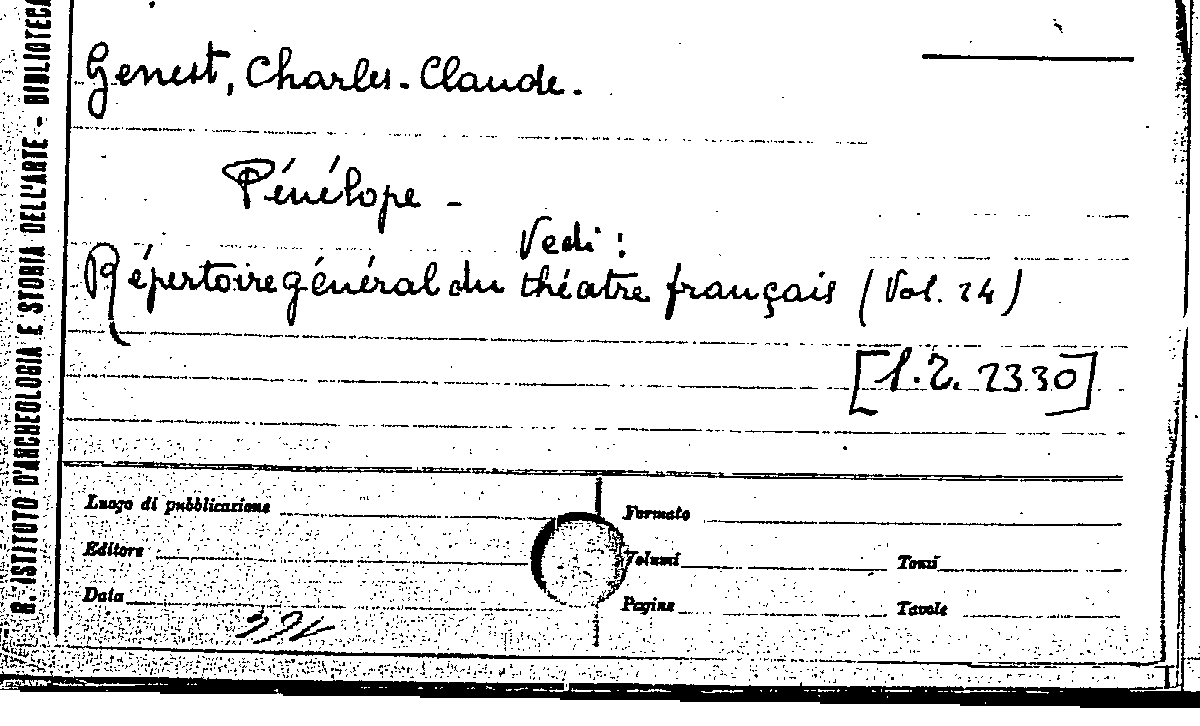 R. ISTITUTO D'ARCHEOLOGIA E STORIA DELL'ARTE - BIBLIOTECA
Genest, Charles-Claude.
Pénélope -
Vedi:
Répertoire général du théatre français (Vol. 24)
2330]
Luogo di pubblicazione
Formato
Editore
Volumi
Tomi
Data
Pagine
Tavole